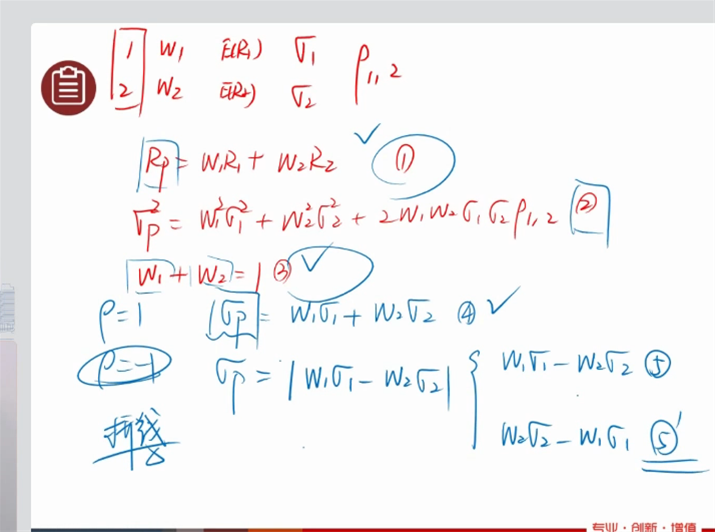 1 W₁ E(R₁) σ₁ ρ₁,₂
2 W₂ E(R₂) σ₂
Rp = W₁R₁ + W₂R₂ ✓ ①
σp² = W₁²σ₁² + W₂²σ₂² + 2W₁W₂σ₁σ₂ρ₁,₂ ②
W₁ + W₂ = 1 ③ ✓
ρ=1 σp = W₁σ₁ + W₂σ₂ ④ ✓
ρ=-1 σp = |W₁σ₁ - W₂σ₂| { W₁σ₁ - W₂σ₂ ⑤
W₂σ₂ - W₁σ₁ ⑤'
折线
专业·创新·增值